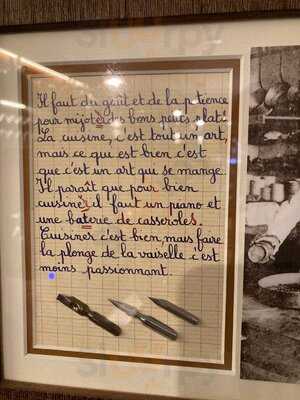 Il faut du goût et de la patience
pour mijotèr des bons petits plats.
La cuisine, c'est tout un art,
mais ce qui est bien c'est
que c'est un art qui se mange.
Il paraît que pour bien
cuisiner il faut un piano et
une baterie de casseroles.
Cuisiner c'est bien, mais faire
la plonge de la vaiselle c'est
moins passionnant.